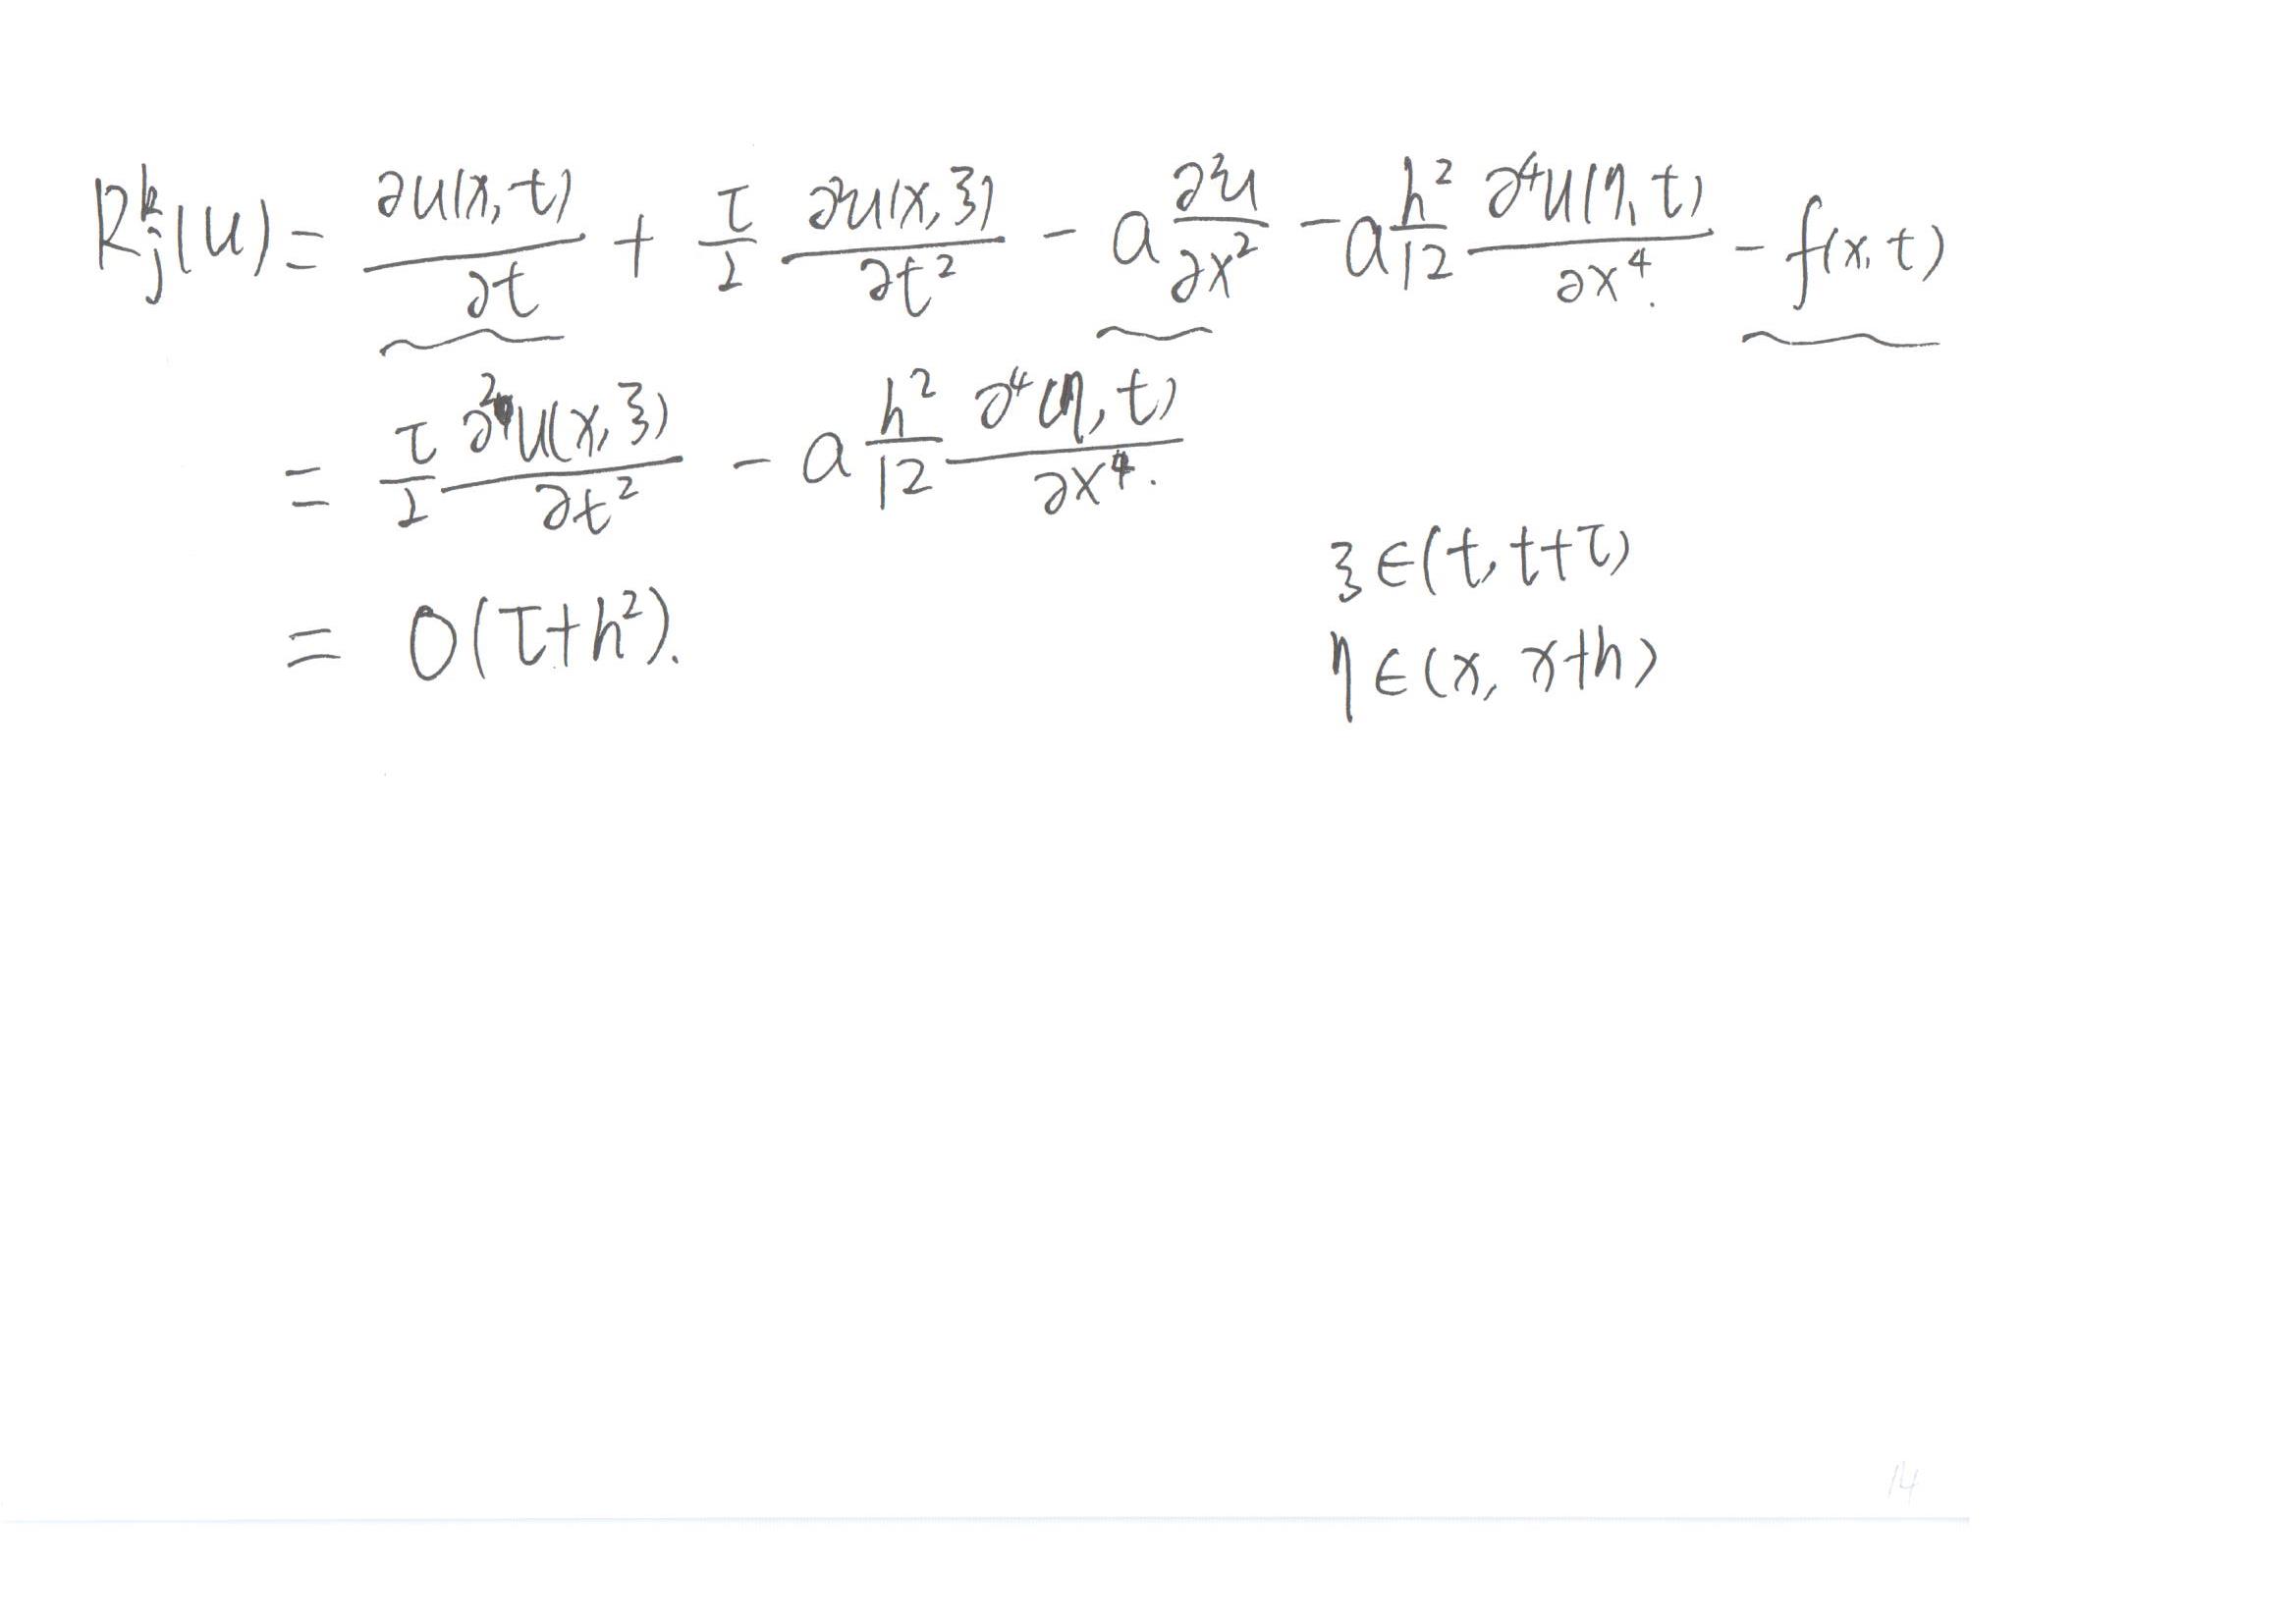 R_j^k(u) = ∂u(x,t)/∂t + τ/2 ∂²u(x,ξ)/∂t² - a ∂²u/∂x² - a h²/12 ∂⁴u(η,t)/∂x⁴. - f(x,t)
= τ/2 ∂²u(x,ξ)/∂t² - a h²/12 ∂⁴(η,t)/∂x⁴.
ξ∈(t, t+τ)
= O(τ+h²).
η∈(x, x+h)
14